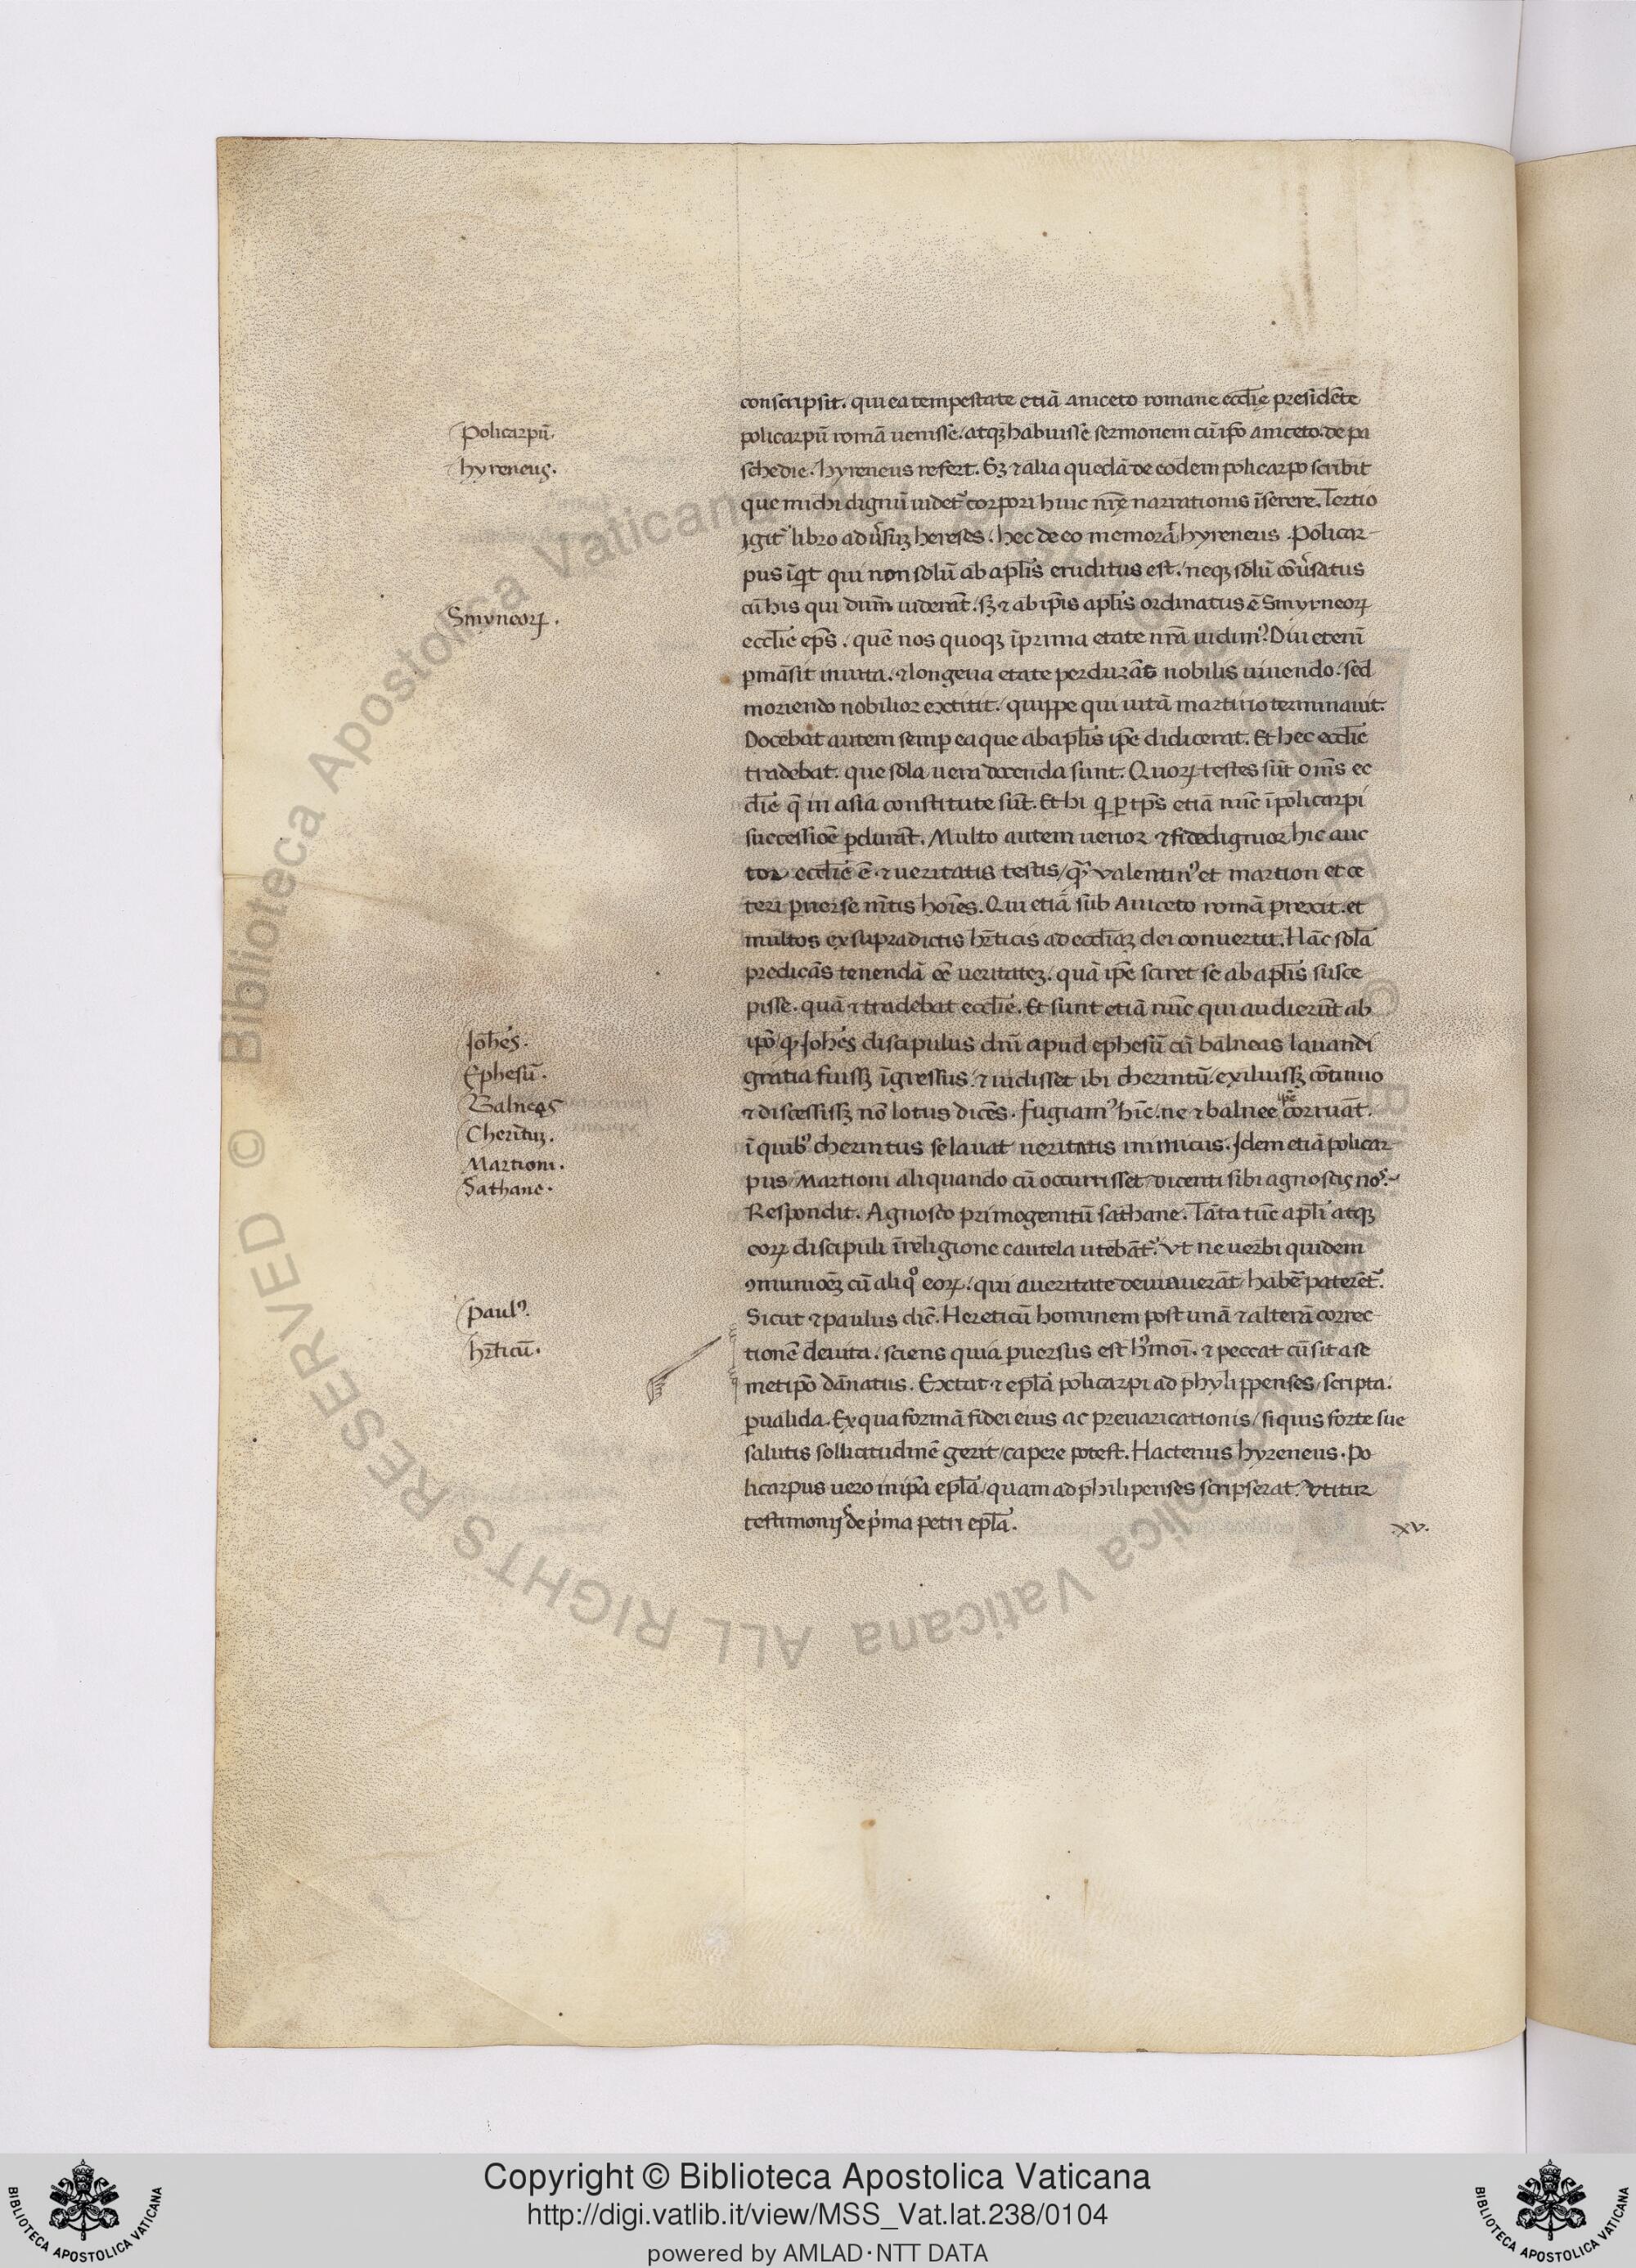 conscripsit. qui ea tempestate etiā aniceto romane eccl̄ie presidēte
Policarpū.
policarpū romā uenisse. atqȝ habuisse sermonem cū ip̄o aniceto de pa
hyreneus.
sche die. hyreneus refert. Sȝ ⁊ alia quedā de eodem policarpo scribit
que michi dignū uidet᷑ corpori huic nr̄e narrationis īserere. Tertio
igit᷑ libro aduersuȝ hereses. hec de eo memorat hyreneus. Policar-
pus īqt qui non solū ab apl̄is eruditus est. neqȝ solū cōuersatus
cū his qui dūm uiderāt. sȝ ⁊ ab ip̄is apl̄is ordinatus ē Smyrneoꝝ
Smyrneoꝝ.
eccl̄ie ep̄s. quē nos quoqȝ ī prima etate nr̄a uidimꝰ. Diu etenī
ꝑmāsit in uita. ⁊ longeua etate perdurās nobilis uiuendo. sed
moriendo nobilior extitit. quippe qui uitā martirio terminauit.
Docebat autem semꝑ ea que ab apl̄is ip̄e didicerat. Et hec eccl̄ie
tradebat. que sola uera docenda sunt. Quoꝝ testes sūt om̄s ec
cl̄ie q̄ in asia constitute sūt. Et hi q ꝑ tp̄s etiā nūc ī policarpi
successiōe ꝑdurāt. Multo autem uerior ⁊ fide dignior hic auc
tor eccl̄ie ē ⁊ ueritatis testis, qȝ valentinꝰ et martion et ce
teri ꝑuerse mētis hoīes. Qui etiā sub Aniceto romā ꝑrexit. et
multos ex supradictis hr̄ticis ad eccl̄iaȝ dei conuertit. Hāc solā
predicās tenendā eē ueritateȝ. quā ip̄e sciret se ab apl̄is susce
pisse. quā ⁊ tradebat eccl̄ie. Et sunt etiā nūc qui audierūt ab
Joh̄es.
ip̄o qꝫ Joh̄es discipulus dn̄i apud ephesū cū balneas lauandi
Ephesū.
gratia fuissȝ īgressus ⁊ uidisset ibi cherintū exiluissȝ cōtinuo
Balneas
⁊ discessissȝ nō lotus dicēs. fugiamꝰ hīc. ne ⁊ balnee ip̄e corruāt.
Cherītuȝ.
ī quibꝰ cherintus se lauat ueritatis inimicus. Idem etiā policar
Martioni.
pus Martioni aliquando cū occurrisset dicenti sibi agnoscis nos.
Sathane.
Respondit. Agnosco primogenitū sathane. Tāta tūc apl̄i atqȝ
eoꝝ discipuli ī religione cautela utebāt᷑. Vt ne uerbi quidem
ꝯmunioēȝ cū aliqͦ eoꝝ. qui a ueritate deuiauerāt habē paterēt᷑.
Paulꝰ.
Sicut ⁊ paulus dic̄. Hereticū hominem post unā ⁊ alterā correc-
hr̄ticū.
tionē deuita. sciens quia ꝑuersus est hꝰmoī. ⁊ peccat cū sit a se
metip̄o dānatus. Extat ⁊ epl̄a policarpi ad phylippenses, scripta.
ꝑualida. Ex qua formā fidei eius ac preuaricationis, siquis forte sue
salutis sollicitudinē gerit, capere potest. Hactenus hyreneus. Po
licarpus uero in ip̄a epl̄a, quam ad philipenses scripserat. vtitur
testimonijs de pͥma petri epl̄a.
.xv.
Copyright © Biblioteca Apostolica Vaticana
http://digi.vatlib.it/view/MSS_Vat.lat.238/0104
powered by AMLAD·NTT DATA
BIBLIOTECA APOSTOLICA VATICANA
BIBLIOTECA APOSTOLICA VATICANA
© Biblioteca Apostolica Vaticana ALL RIGHTS RESERVED